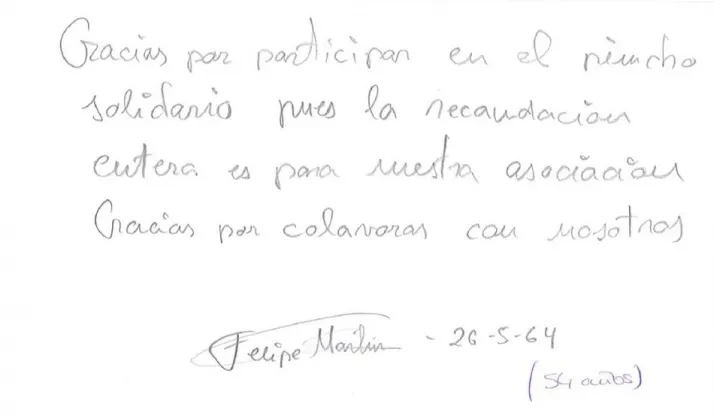 Gracias por participar en el pincho
solidario pues la recaudacion
entera es para nuestra asociación
Gracias por colavoras con nosotros
Felipe Martin - 26-5-64
(54 años)